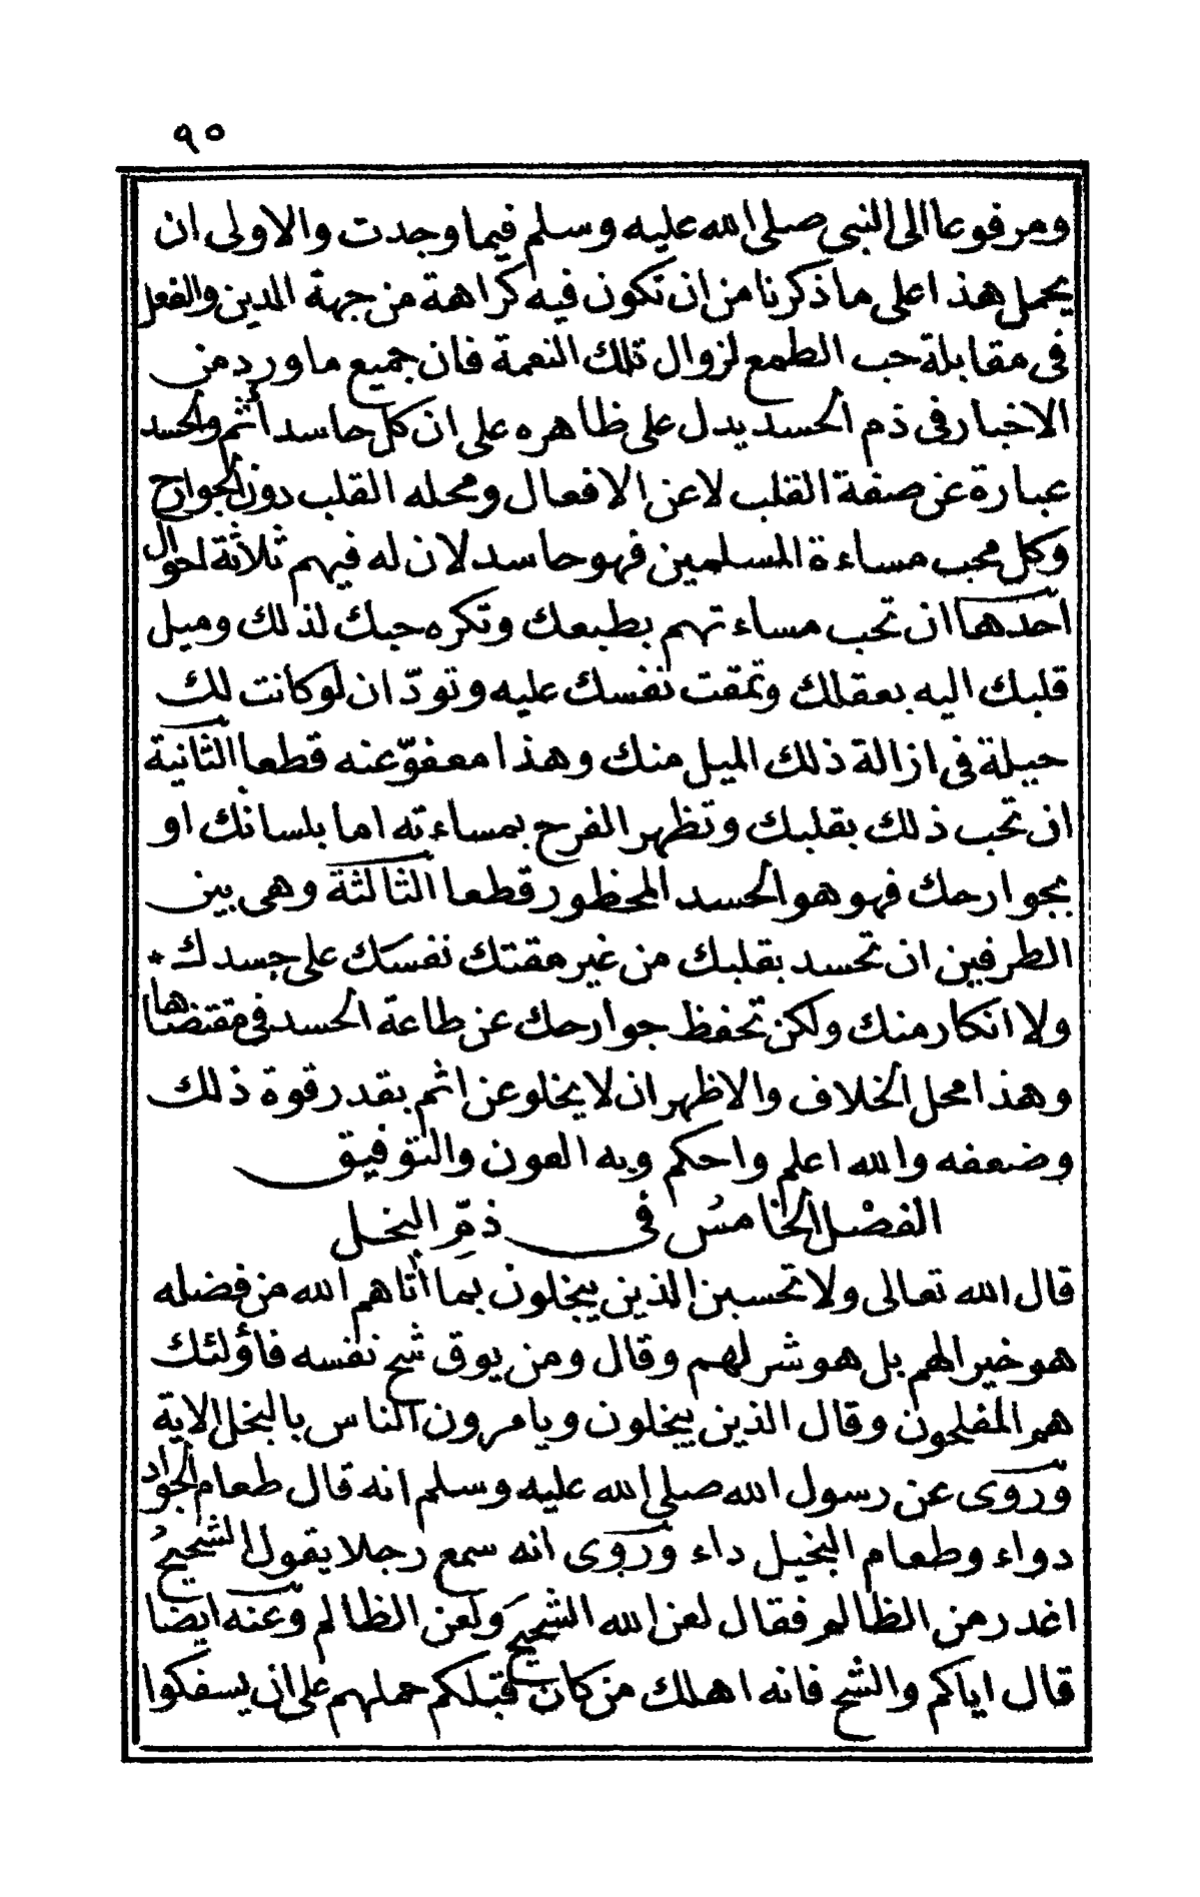 ٩٥
ومرفوعا الى النبى صلى الله عليه وسلم فيما وجدت والاولى ان
يحمل هذا على ما ذكرنا من ان تكون فيه كراهة من جهة الدين والفعل
فى مقابلة حب الطمع لزوال تلك النعمة فان جميع ما ورد من
الاخبار فى ذم الحسد يدل على ظاهره على ان كل حاسد أثم والحسد
عبارة عن صفة القلب لا عن الافعال ومحله القلب دون الجوارح
وكل محب مساءة المسلمين فهو حاسد لان له فيهم ثلاثة احوال
احدها ان تحب مساءتهم بطبعك وتكره حبك لذلك وميل
قلبك اليه بعقلك وتمقت نفسك عليه وتودّ ان لو كانت لك
حيلة فى ازالة ذلك الميل منك وهذا معفوّ عنه قطعا الثانية
ان تحب ذلك بقلبك وتظهر الفرح بمساءته اما بلسانك او
بجوارحك فهو هو الحسد المحظور قطعا الثالثة وهى بين
الطرفين ان تحسد بقلبك من غير مقتك نفسك على حسدك *
ولا انكار منك ولكن تحفظ جوارحك عن طاعة الحسد فى مقتضاها
وهذا محل الخلاف والاظهر ان لا يخلو عن اثم بقدر قوة ذلك
وضعفه والله اعلم واحكم وبه العون والتوفيق
الفصْل الخامسُ فى ذمِّ البخل
قال الله تعالى ولا تحسبن الذين يبخلون بما أتاهم الله من فضله
هو خيرا لهم بل هو شر لهم وقال ومن يوق شح نفسه فأولئك
هم المفلحون وقال الذين يبخلون ويامرون الناس بالبخل الاية
وروى عن رسول الله صلى الله عليه وسلم انه قال طعام الجواد
دواء وطعام البخيل داء وروى انه سمع رجلا يقول الشحيحُ
اغدر من الظالم فقال لعن الله الشحيحَ ولعن الظالم وعنه ايضا
قال اياكم والشح فانه اهلك من كان قبلكم حملهم على ان يسفكوا